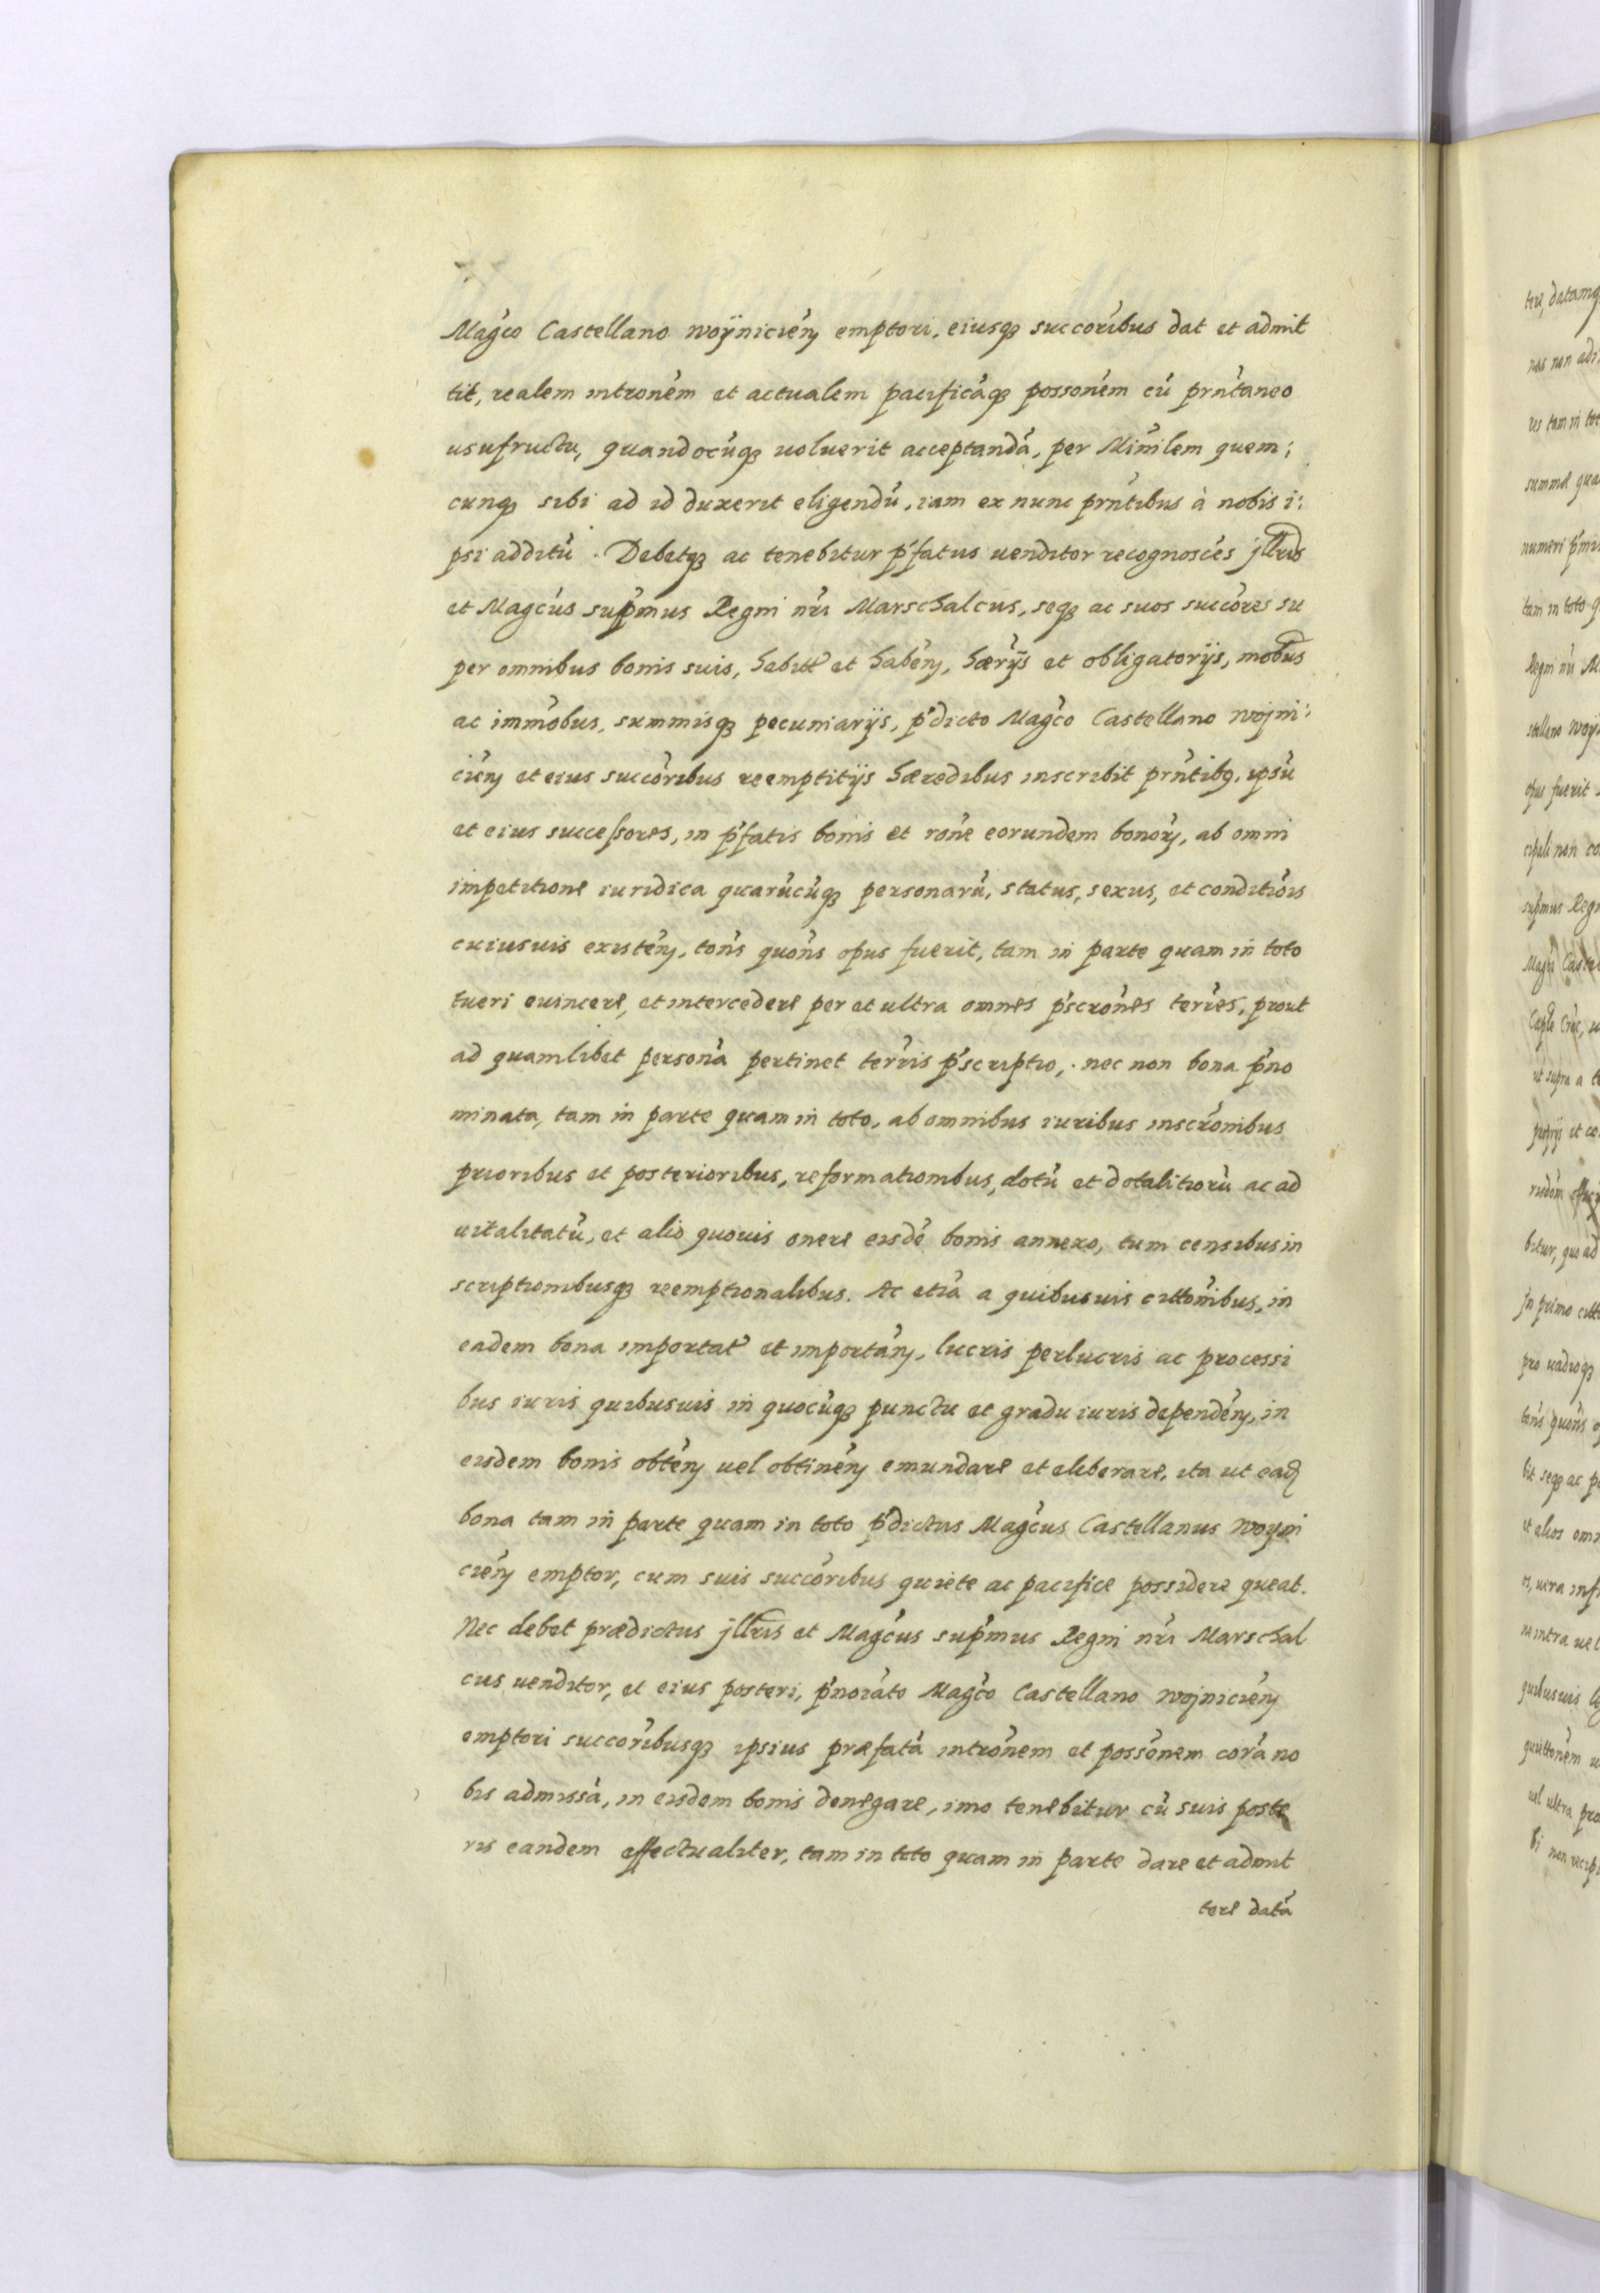 Mag̃co Castellano woÿnicień emptori, eiusq₃ succor̃ibus dat et admit
tit, realem introñem et actualem pacificãq₃ possoñem cũ prñtaneo
usufructu, quandocũq₃ uoluerit acceptandã, per Miñilem quem;
cunq₃ sibi ad id duxerit eligendũ, iam ex nunc prñtibus à nobis i:
psi additũ. Debetq₃ ac tenebitur p̃fatus uenditor recognoscẽs jllrĩs
et Mag̃cus sup̃mus Regni nr̃i Marschalcus, seq₃ ac suos succõres su
per omnibus bonis suis, habitt̃ et habẽn, hær̃ijs et obligatorijs, mob̃us
ac immõbus, summisq₃ pecuniarijs, p̃dicto Mag̃co Castellano wojni:
ciẽn et eius succõribus reemptitijs hæredibus inscribit prñtibꝫ, ipsũ
et eius successores, in p̃fatis bonis et roñe eorundem bonorꝫ, ab omni
impetitione iuridica quarũcũq₃ personarũ, status, sexus, et conditiõis
cuiusuis existẽn, toñs quoñs opus fuerit, tam in parte quam in toto
tueri euincere, et intercedere per et ultra omnes p̃scroñes terr̃es, prout
ad quamlibet personã pertinet terr̃is p̃scriptio, nec non bona p̃no
minata, tam in parte quam in toto, ab omnibus iuribus inscrõnibus
prioribus et posterioribus, reformationibus, dotũ et dotalitiorũ ac ad
uitalitatũ, et alio quouis onere eisdẽ bonis annexo, tum censibus in
scriptionibusq₃ reemptionalibus. Ac etiã a quibusuis cittoñibus, in
eadem bona importat̃ et importãn, lucris perlucris ac processi
bus iuris quibusuis in quocũq₃ punctu et gradu iuris dependẽn, in
eisdem bonis obtẽn uel obtinẽn emundare et eliberare, ita ut eadꝫ
bona tam in parte quam in toto p̃dictus Mag̃cus Castellanus woyni
ciẽn emptor, cum suis succõribus quiete ac pacifice possidere queat.
Nec debet prædictus jllris et Mag̃cus sup̃mus Regni nr̃i Marschal
cus uenditor, et eius posteri, p̃noiãto Mag̃co Castellano wojniciẽn
emptori succoribusq₃ ipsius præfatã introñem et possẽnem corã no
bis admissã, in eisdem bonis denegare, imo tenebitur cũ suis poste
ris eandem effectualiter, tam in toto quam in parte dare et admit
tere datã